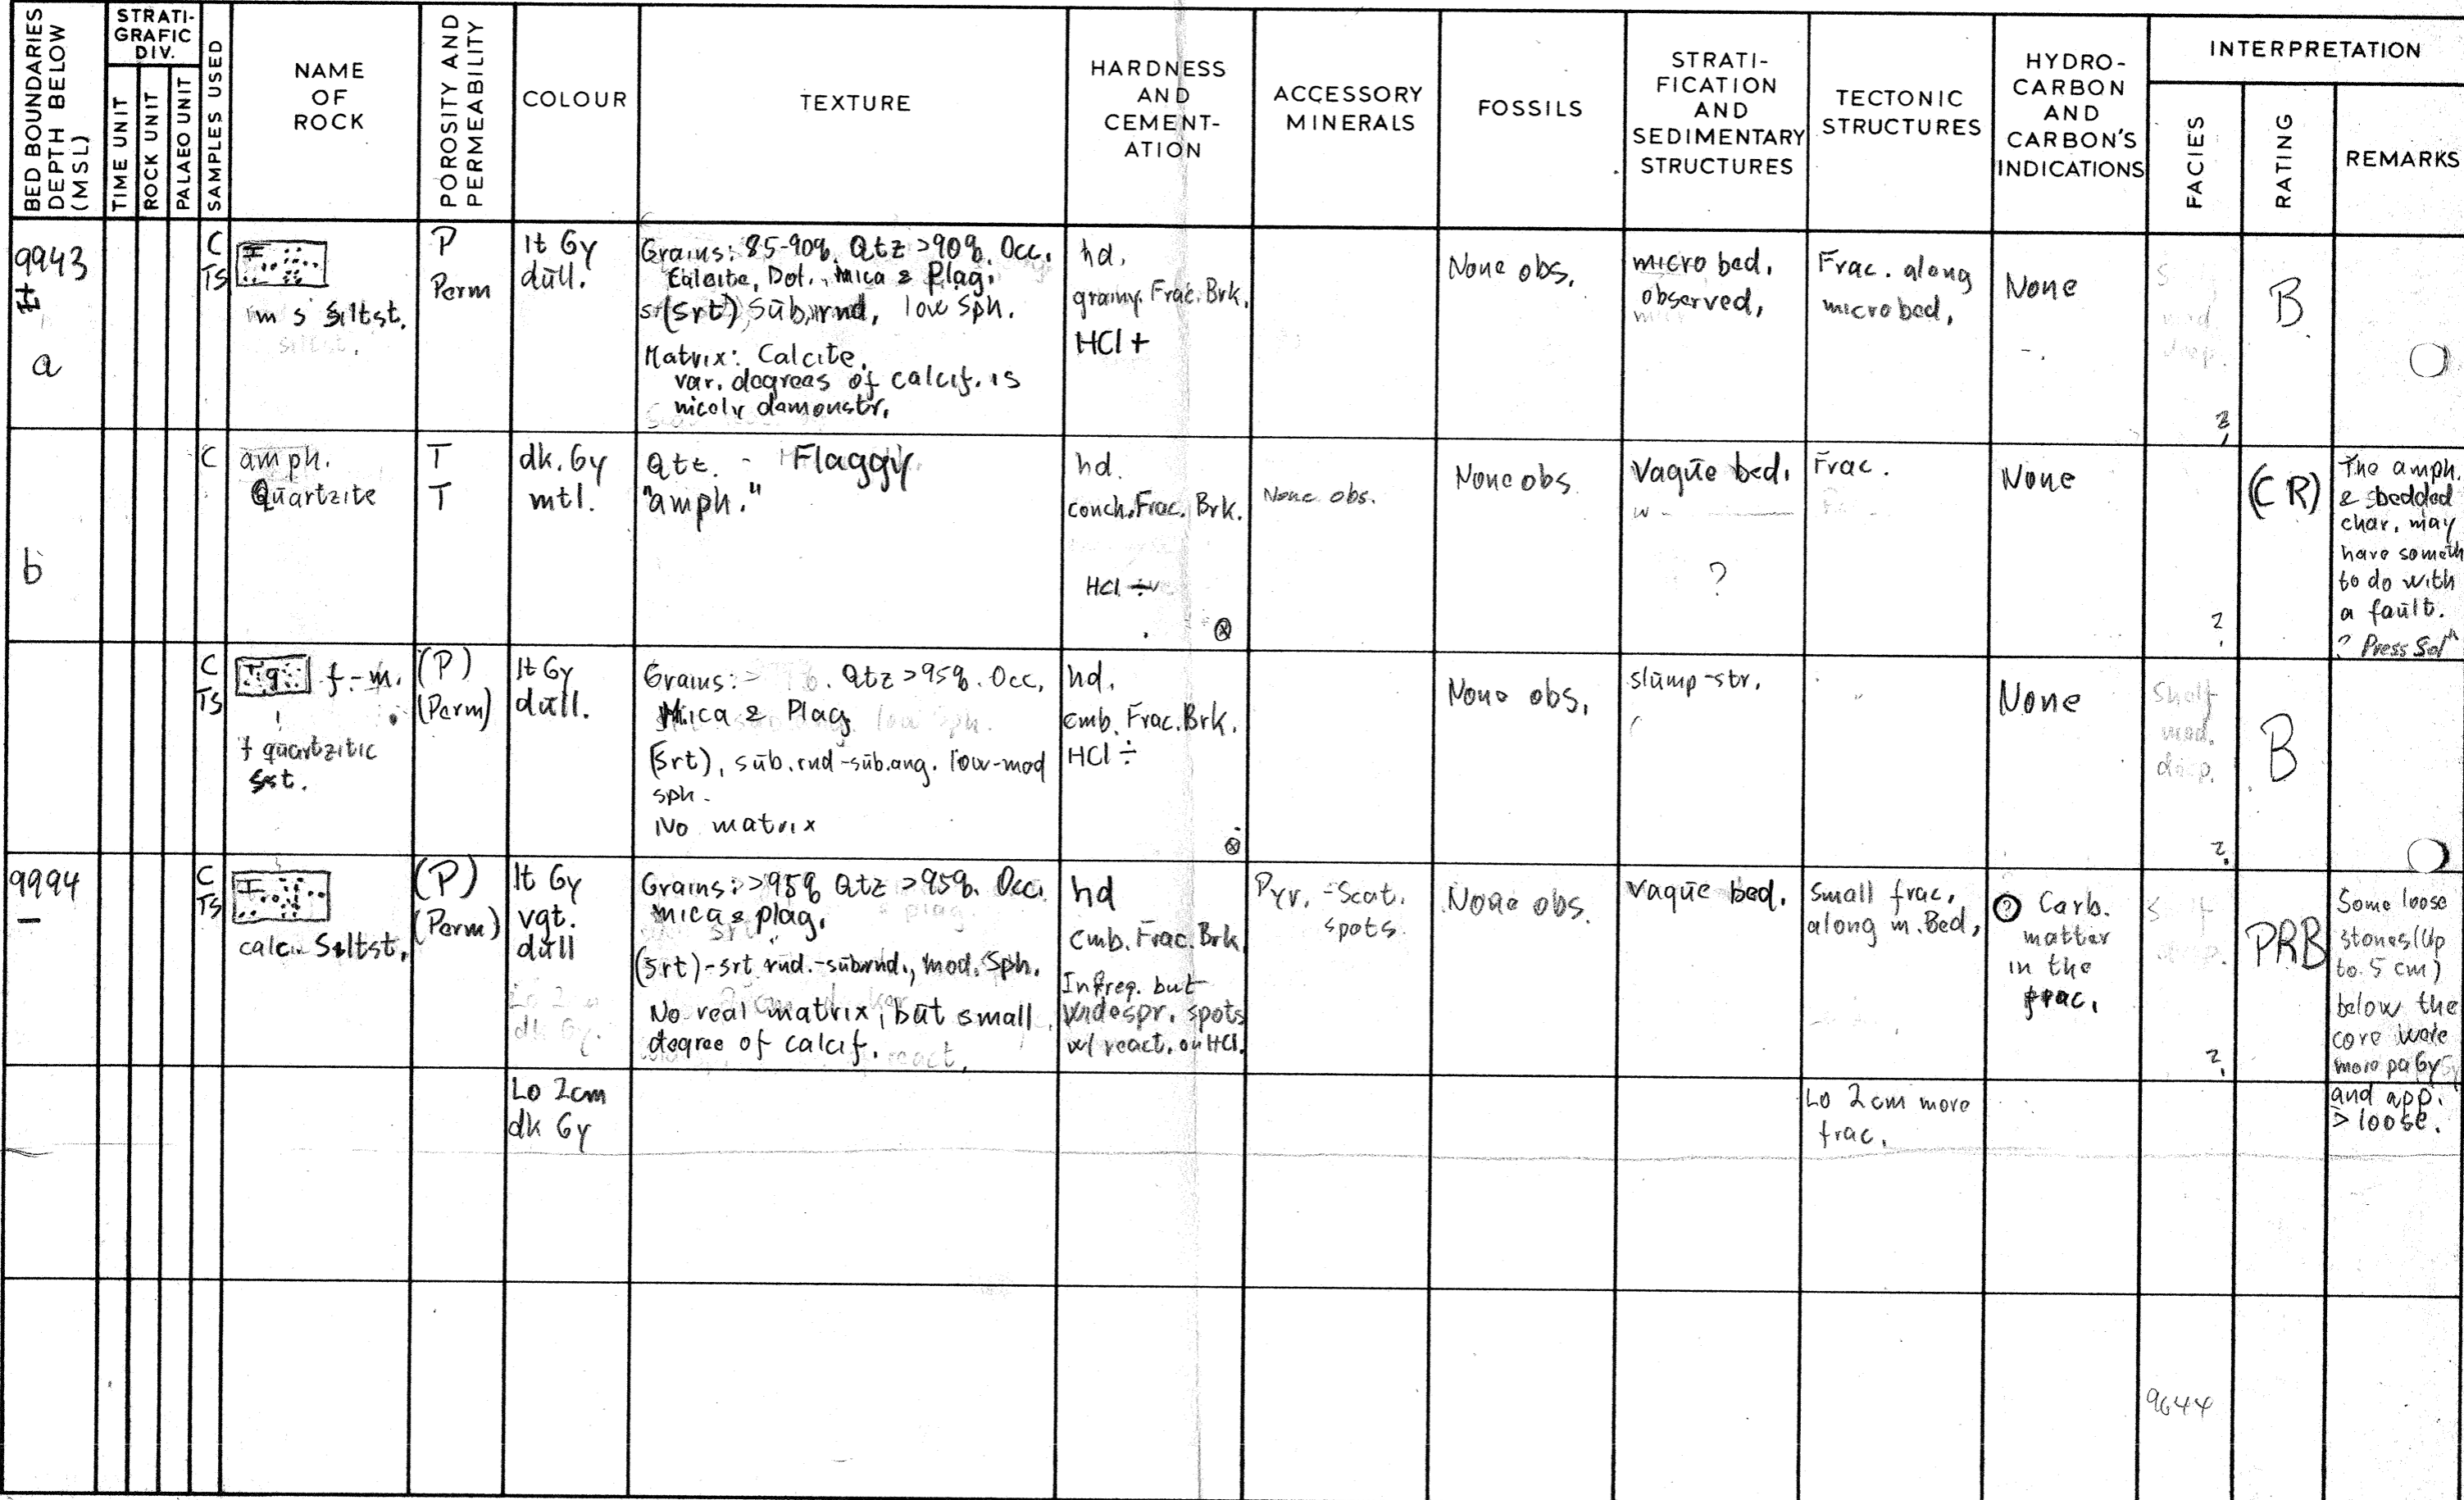 BED BOUNDARIES
DEPTH BELOW
(MSL)
STRATI-
GRAFIC
DIV.
TIME UNIT
ROCK UNIT
PALAEO UNIT
SAMPLES USED
NAME
OF
ROCK
POROSITY AND
PERMEABILITY
COLOUR
TEXTURE
HARDNESS
AND
CEMENT-
ATION
ACCESSORY
MINERALS
FOSSILS
STRATI-
FICATION
AND
SEDIMENTARY
STRUCTURES
TECTONIC
STRUCTURES
HYDRO-
CARBON
AND
CARBON'S
INDICATIONS
INTERPRETATION
FACIES
RATING
REMARKS
9943
a
C
TS
s siltst.
P
Perm
lt Gy
dull.
Grains: 85-90%. Qtz >90%. Occ.
Calcite, Dol., Mica & Plag.
(srt) sub.rnd, low sph.
Matrix: Calcite.
var. degrees of calcif. is
nicely demonstr.
hd.
grainy. Frac. Brk.
HCl +
None obs.
micro bed.
observed,
Frac. along
micro bed.
None
?
B
b
C
amph.
Quartzite
T
T
dk. Gy
mtl.
Qtz. - Flaggy
"amph."
hd.
conch. Frac. Brk.
HCl ÷
None obs.
None obs
Vague bed.
?
Frac.
None
?
(CR)
The amph.
& bedded
char. may
have someth
to do with
a fault.
? Press Sol
C
TS
f.-m.
f quartzitic
sst.
(P)
(Perm)
lt Gy
dull.
Grains: Qtz >95%. Occ.
Mica & Plag
(srt), sub.rnd-sub.ang. low-mod
sph.
No matrix
hd.
cmb. Frac. Brk.
HCl ÷
None obs.
slump-str.
None
Shelf
mod.
deep.
?
B
9994
C
TS
calc. Siltst.
(P)
(Perm)
lt Gy
vgt.
dull
Grains: >95% Qtz >95%. Occ.
mica & plag.
(srt)-srt rnd.-subrnd., mod. Sph.
No real matrix, but small
degree of calcif.
hd
cmb. Frac. Brk
Infreq. but
widespr. spots
w/ react. on HCl.
Pyr. - Scat.
spots
None obs.
vague bed.
Small frac.
along m. Bed,
? Carb.
matter
in the
frac.
?
PRB
Some loose
stones (Up
to 5 cm)
below the
core were
more pa Gy
Lo 2cm
dk Gy
Lo 2cm more
frac.
and app.
> loose.
9644